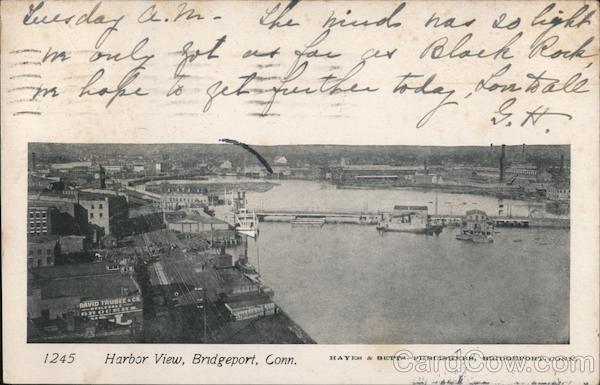 Tuesday A.M. - The wind was so light
we only got as far as Black Rock,
we hope to get further today, Love to all
G. H.
DAVID TRUBEE & CO.
WHOLESALE
GROCERS
1245 Harbor View, Bridgeport, Conn.
HAYES & BETTS PUBLISHERS, BRIDGEPORT, CONN.
CardCow.com